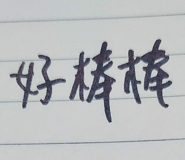 好棒棒